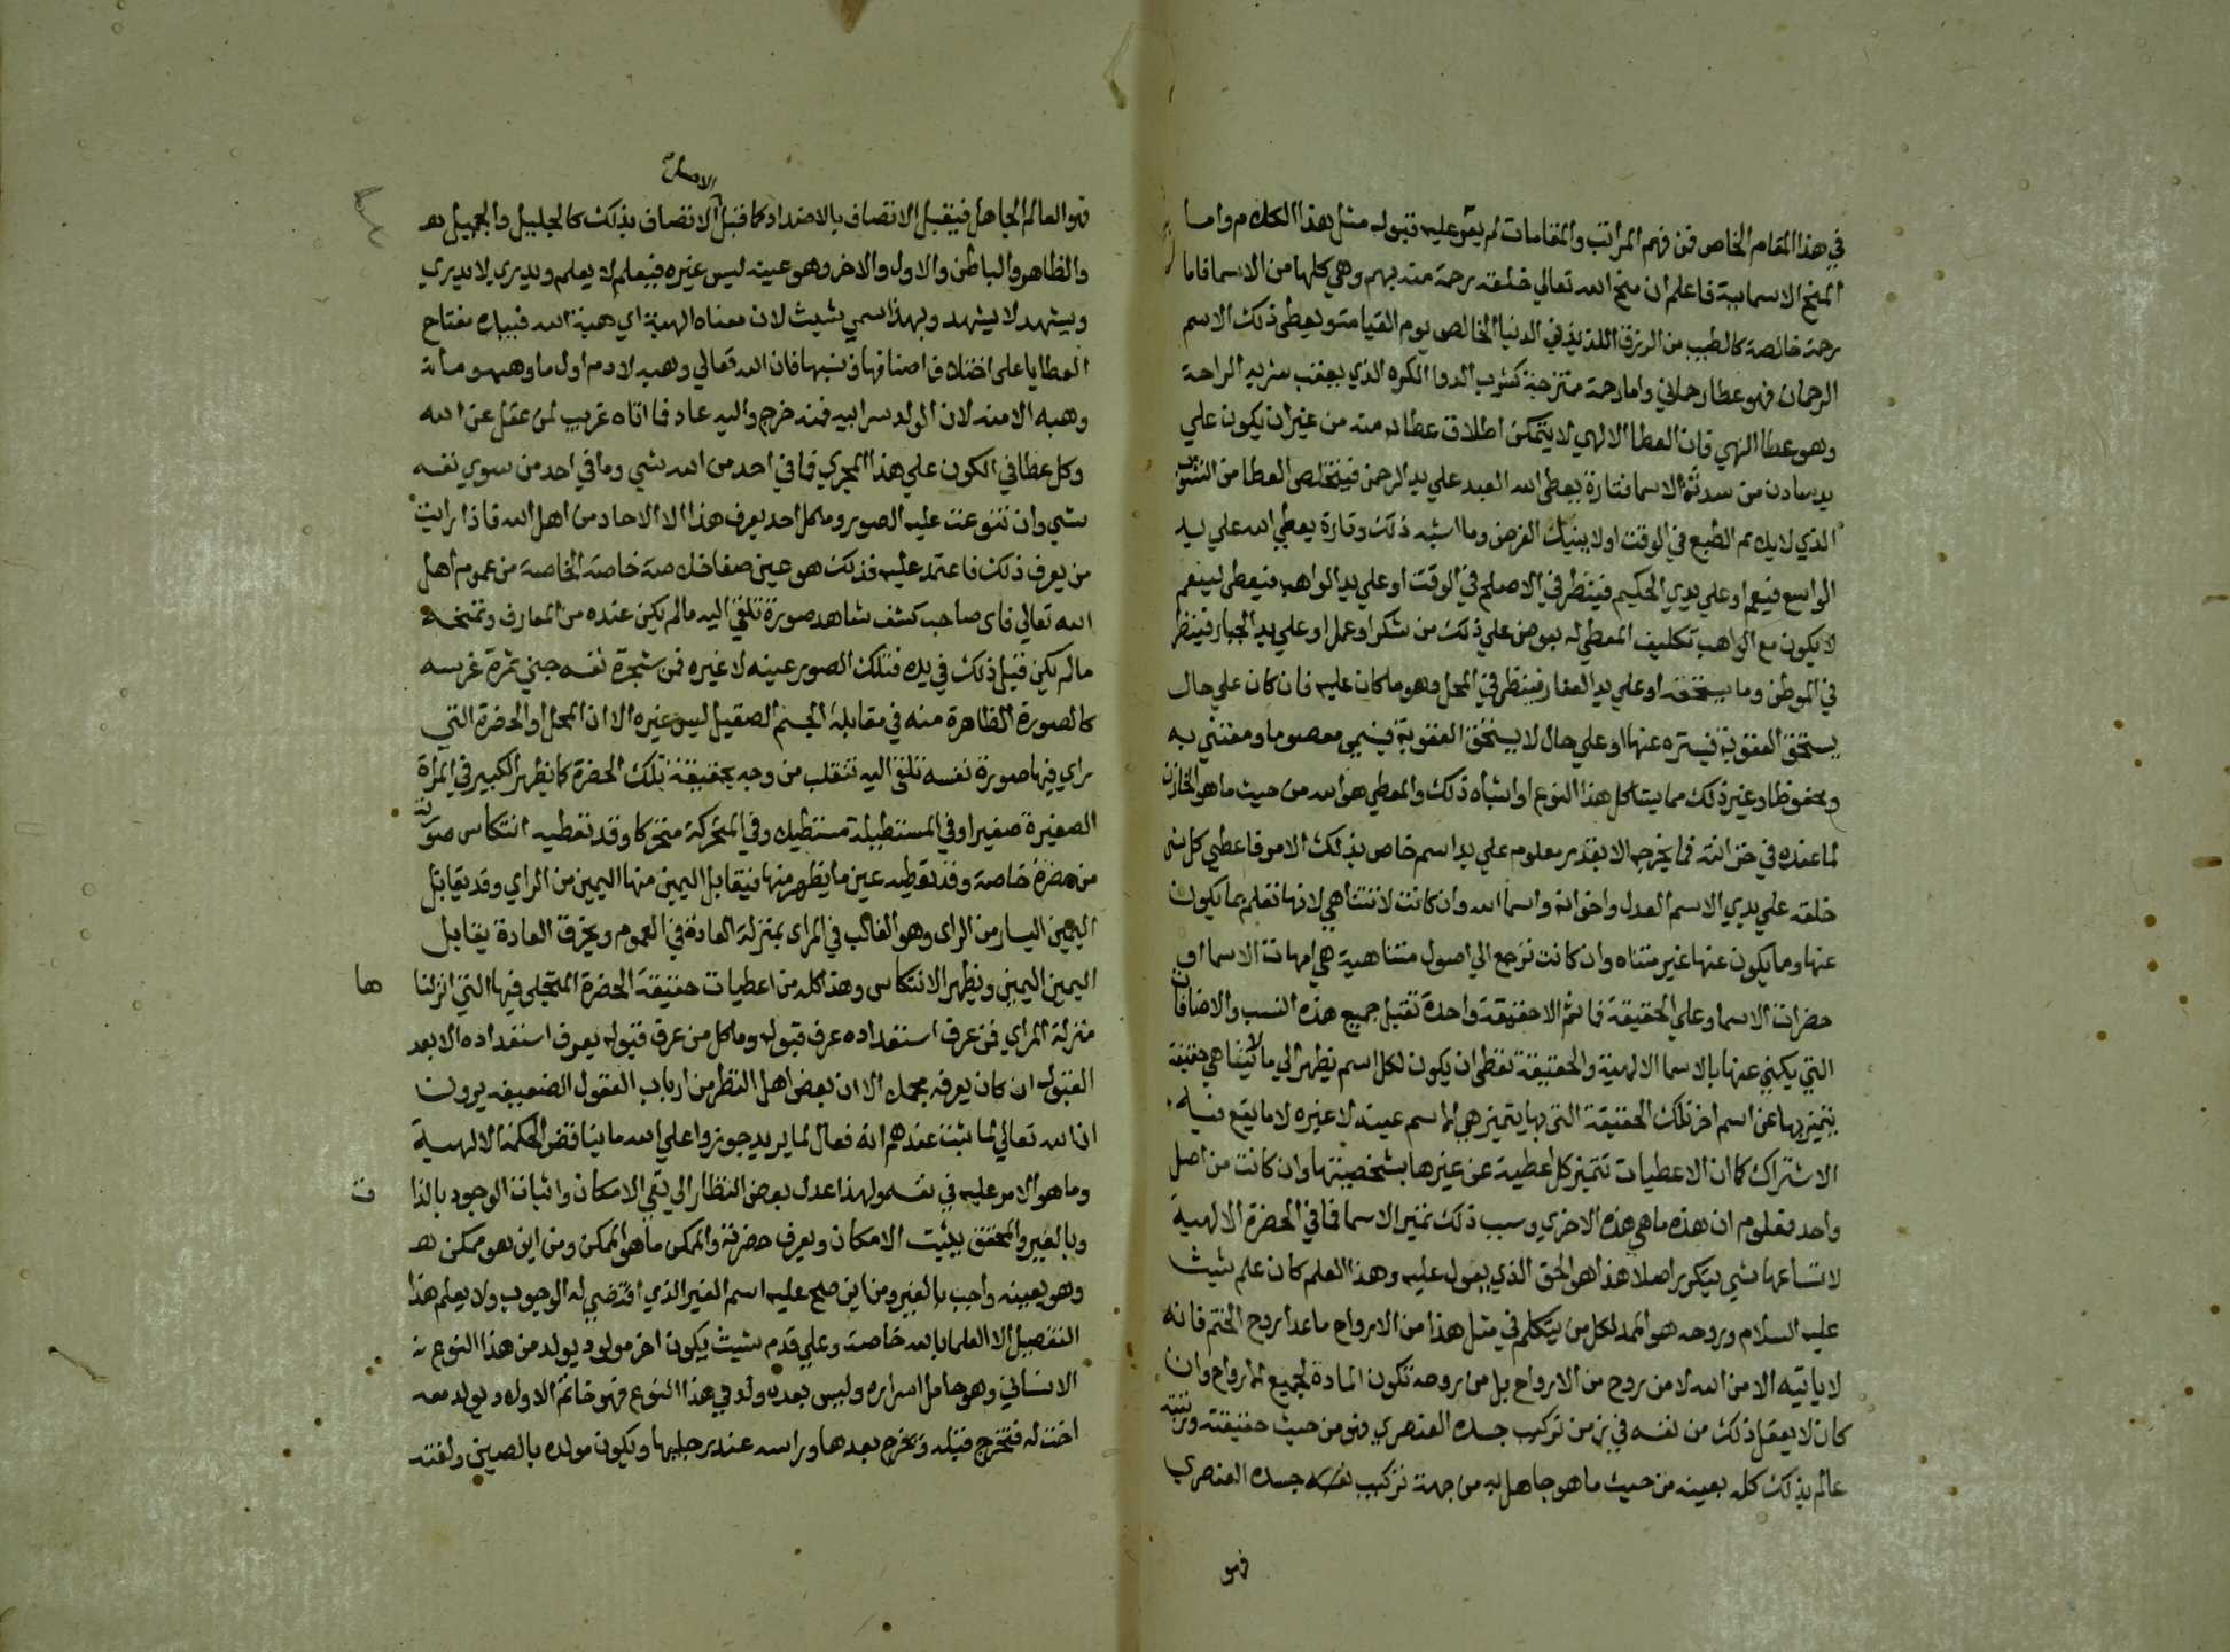 في هذا المقام الخاص فمن فهم المراتب والمقامات لم يعسر عليه قبول مثل هذا الكلام واما
المنح الاسمايية فاعلم ان منح الله تعالي خلقه رحمة منه بهم وهي كلها من الاسما فاما
رحمة خالصة كالطيب من الرزق اللذيذ في الدنيا الخالص يوم القيامة ويعطي ذلك الاسم
الرحمان فهو عطا رحماني واما رحمة ممتزجة كشرب الدوا الكره الذي يعقب شربه الراحة
وهو عطا الهي فان العطا الالهي لا يتمكن اطلاق عطاه منه من غير ان يكون علي
يد سادن من سدنة الاسما فتارة يعطي الله العبد علي يد الرحمن فيخلص العطا من الشوب
الذي لا يلايم الطبع في الوقت اولا ينيل الغرض وما اشبه ذلك وتارة يعطي الله علي يد
الواسع فيعم او علي يدي الحكيم فينظر في الاصلح في الوقت او علي يد الواهب فيعطي لينعم
لا يكون مع الواهب تكليف المعطي له بعوض علي ذلك من شكر او عمل او علي يد الجبار فينظر
في الموطن وما يستحقه او علي يد الغفار فينظر في المحل وهو ما كان عليه فان كان علي حال
يستحق العقوبة فيستره عنها او علي حال لا يستحق العقوبة فيسمي معصوما ومعتني به
ومحفوظا وغير ذلك مما يشاكل هذا النوع او اشباه ذلك والمعطي هو الله من حيث ما هو الخازن
لما عنده في خزانته فما يخرجه الا بقدر معلوم علي يد اسم خاص بذلك الامر فاعطي كل شي
خلقه علي يدي الاسم العدل واخوانه واسما الله وان كانت لا تتناهي لانها تعلم بما يكون
عنها وما يكون عنها غير متناه وان كانت ترجع الي اصول متناهية هي امهات الاسما او
حضرات الاسما وعلي الحقيقة فما ثم الا حقيقة واحدة تقبل جميع هذه النسب والاضافات
التي يكني عنها بالاسما الالهية والحقيقة تعطي ان يكون لكل اسم يظهر الي ما لا يتناهي حقيقة
يتميز بها عن اسم اخر تلك الحقيقة التي بها يتميز هي الاسم عينه لا غيره لا ما يقع فيه
الاشتراك كما ان الاعطيات تتميز كل اعطية عن غيرها بشخصيتها وان كانت من اصل
واحد فمعلوم ان هذه ما هي هذه الاخري وسبب ذلك تميز الاسما فما في الحضرة الالهية
لاتساعها شي يتكرر اصلا هذا هو الحق الذي يعول عليه وهذا العلم كان علم شيث
عليه السلام وروحه هو الممد لكل من يتكلم في مثل هذا من الارواح ما عدا روح الختم فانه
لا ياتيه الا من الله لا من روح من الارواح بل من روحه تكون المادة لجميع الارواح وان
كان لا يعقل ذلك من نفسه في زمن تركيب جسده العنصري فهو من حيث حقيقته ورتبته
عالم بذلك كله بعينه من حيث ما هو جاهل به من جهة تركيب جسده العنصري
فهو
الاصل
فهو العالم الجاهل فيقبل الاتصاف بالاضداد كما قبل الاتصاف بذلك كالجليل والجميل
والظاهر والباطن والاول والاخر وهو عينه ليس غيره فيعلم لا يعلم ويدري لا يدري
ويشهد لا يشهد وبهذا سمي شيث لان معناه الهبة اي هبة الله فبيده مفتاح
العطايا علي اختلاف اصنافها ونسبها فان الله تعالي وهبه لادم اول ما وهبه وما
وهبه الا منه لان الولد سر ابيه فمنه خرج واليه عاد فما اتاه غريب لمن عقل عن الله
وكل عطا في الكون علي هذا المجري فما في احد من الله شي وما في احد من سوي نفسه
شي وان تنوعت عليه الصور وما كل احد يعرف هذا الا الاحاد من اهل الله فاذا رايت
من يعرف ذلك فاعتمد عليه فذلك هو عين صفا خلاصة خاصة الخاصة من عموم اهل
الله تعالي فاي صاحب كشف شاهد صورة تلقي اليه ما لم يكن عنده من المعارف وتمنحه
ما لم يكن قبل ذلك في يده فتلك الصور عينه لا غيره فمن شجرة نفسه جني ثمرة غرسه
كالصورة الظاهرة منه في مقابلة الجسم الصقيل ليس غيره الا ان المحل او الحضرة التي
راي فيها صورة نفسه تلقي اليه تنقلب من وجه بحقيقة تلك الحضرة كما يظهر الكبير في المراة
الصغيرة صغيرا وفي المستطيلة مستطيلا وفي المتحركة متحركا وقد تعطيه انتكاس صورته
من حضرة خاصة وقد تعطيه عين ما يظهر منها فيقابل اليمين منها اليمين من الراي وقد يقابل
اليمين اليسار من الراي وهو الغالب في المراي بمنزلة العادة في العموم وبخرق العادة يقابل
اليمين اليمين ويظهر الانتكاس وهذا كله من اعطيات حقيقة الحضرة المتجلي فيها التي انزلنا
ها
منزلة المراي فمن عرف استعداده عرف قبوله وما كل من عرف قبوله يعرف استعداده الا بعد
القبول ان كان يعرفه مجملا الا ان بعض اهل النظر من ارباب العقول الضعيفة يرون
ان الله تعالي لما ثبت عندهم انه فعال لما يريد جوزوا علي الله ما يناقض الحكمة الالهية
وما هو الامر عليه في نفسه ولهذا عدل بعض النظار الي نفي الامكان واثبات الوجود بالذا
ت
وبالغير والمحقق يثبت الامكان ويعرف حضرته والممكن ما هو الممكن ومن اين هو ممكن
وهو بعينه واجب بالغير ومن اين صح عليه اسم الغير الذي اقتضي له الوجوب ولا يعلم هذا
التفصيل الا العلما بالله خاصة وعلي قدم شيث يكون اخر مولود يولد من هذا النوع
الانساني وهو حامل اسراره وليس بعده ولد في هذا النوع فهو خاتم الاولاد ويولد معه
اخت له فتخرج قبله ويخرج بعدها وراسه عند رجليها ويكون مولده بالصين ولغته